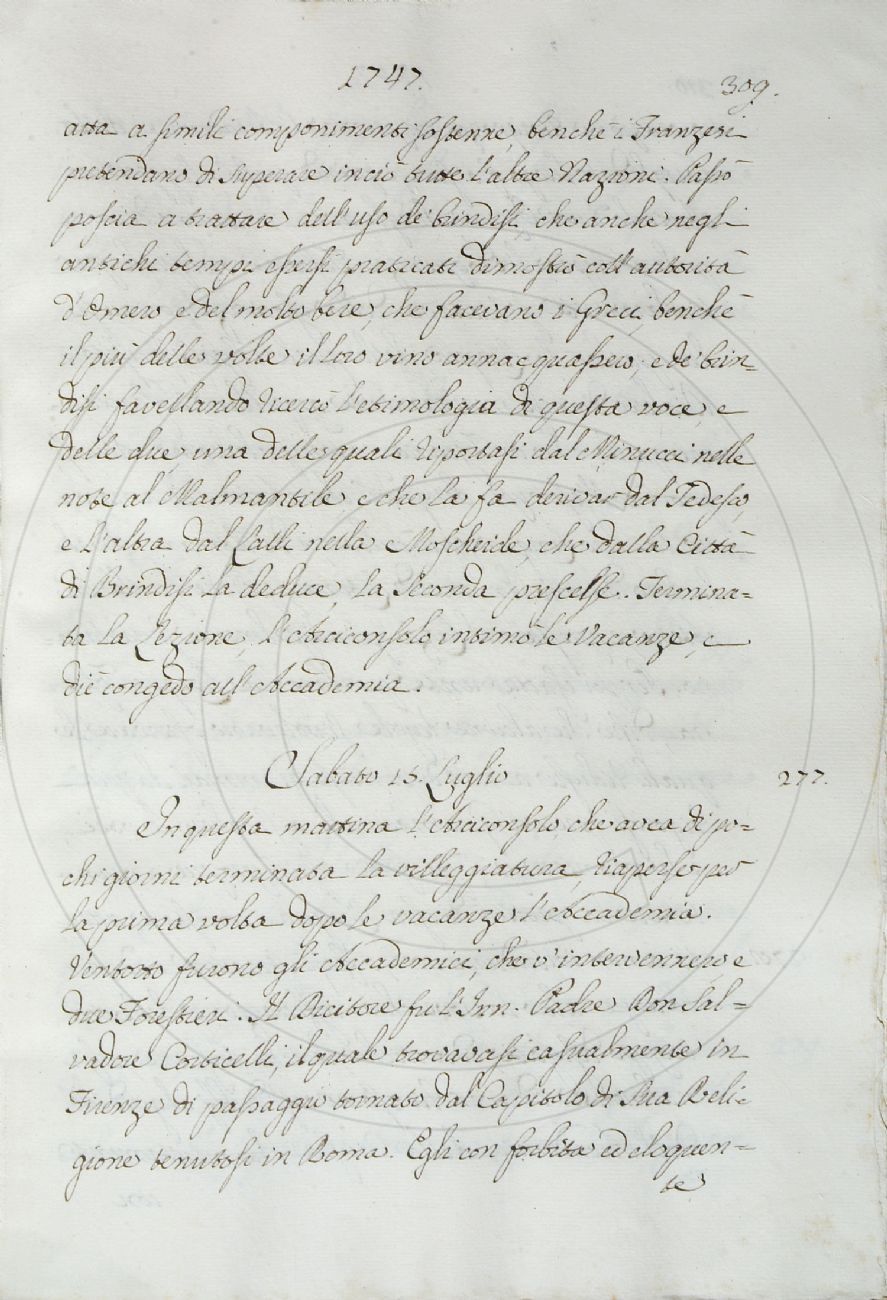 1747.
309.
atta a simili componimenti sostenne, benchè i Franzesi
pretendano di superare in ciò tutte l'altre Nazioni. Passò
poscia a trattare dell'uso de' brindisi, che anche negli
antichi tempi essersi praticati dimostrò coll'autorità
d'Omero e del molto bere, che facevano i Greci, benchè
il più delle volte il loro vino annacquassero; e de' brin=
disi favellando ricercò l'etimologia di questa voce, e
delle due, una delle quali riportasi dal Minucci nelle
note al Malmantile e che la fa derivar dal Tedesco,
e l'altra dal Lalli nella Moscheide, che dalla Città
di Brindisi la deduce, la seconda prescelse. Termina=
ta la Lezione, l'Arciconsolo intimò le Vacanze, e
diè congedo all'Accademia.
Sabato 15. Luglio
277.
In questa mattina l'Arciconsolo, che avea di po=
chi giorni terminata la villeggiatura, riaperse per
la prima volta dopo le vacanze l'Accademia.
Ventotto furono gli Accademici, che v'intervennero, e
due Forestieri. Il Dicitore fu l'Inn. Padre Don Sal=
vadore Corticelli, il quale trovavasi casualmente in
Firenze di passaggio tornato dal Capitolo di sua Reli=
gione tenutosi in Roma. Egli con forbita ed eloquen=
te